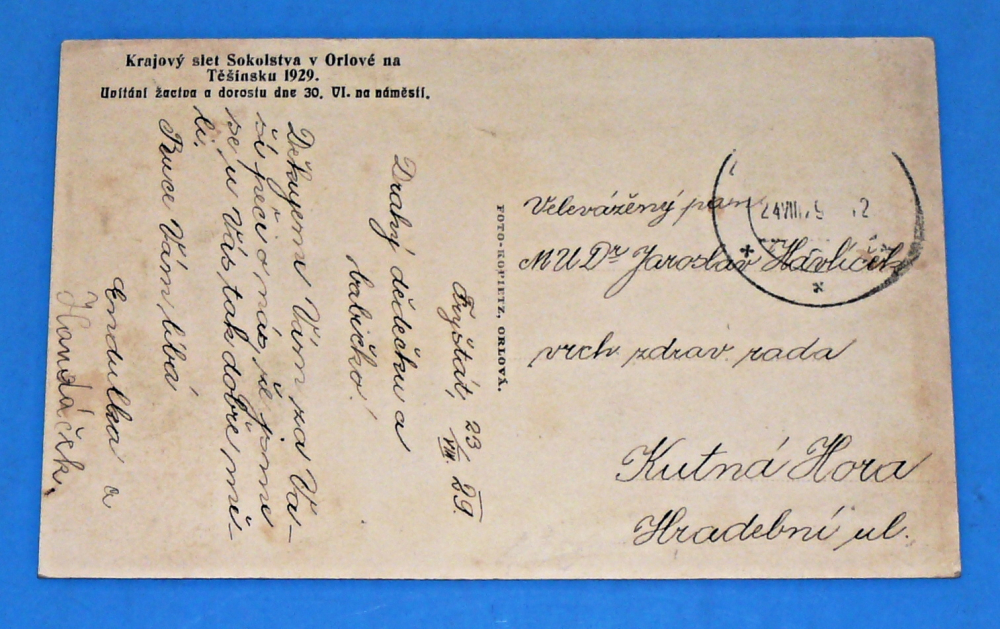 Krajový slet Sokolstva v Orlové na
Těšínsku 1929.
Uvítání žactva a dorostu dne 30. VI. na náměstí.
Fryštát, 23/VIII. 29.
Drahý dědečku a
babičko!
Děkujem Vám za Va-
ši péči o nás, že jsme
se u Vás tak dobře mě-
li.
Ruce Vám líbá
Endulka a
Handáček.
FOTO-KOPIETZ, ORLOVÁ.
24 VIII
Velevážený pan
MUDr Jaroslav Havlíček
vrch. zdrav. rada
Kutná Hora
Hradební ul.